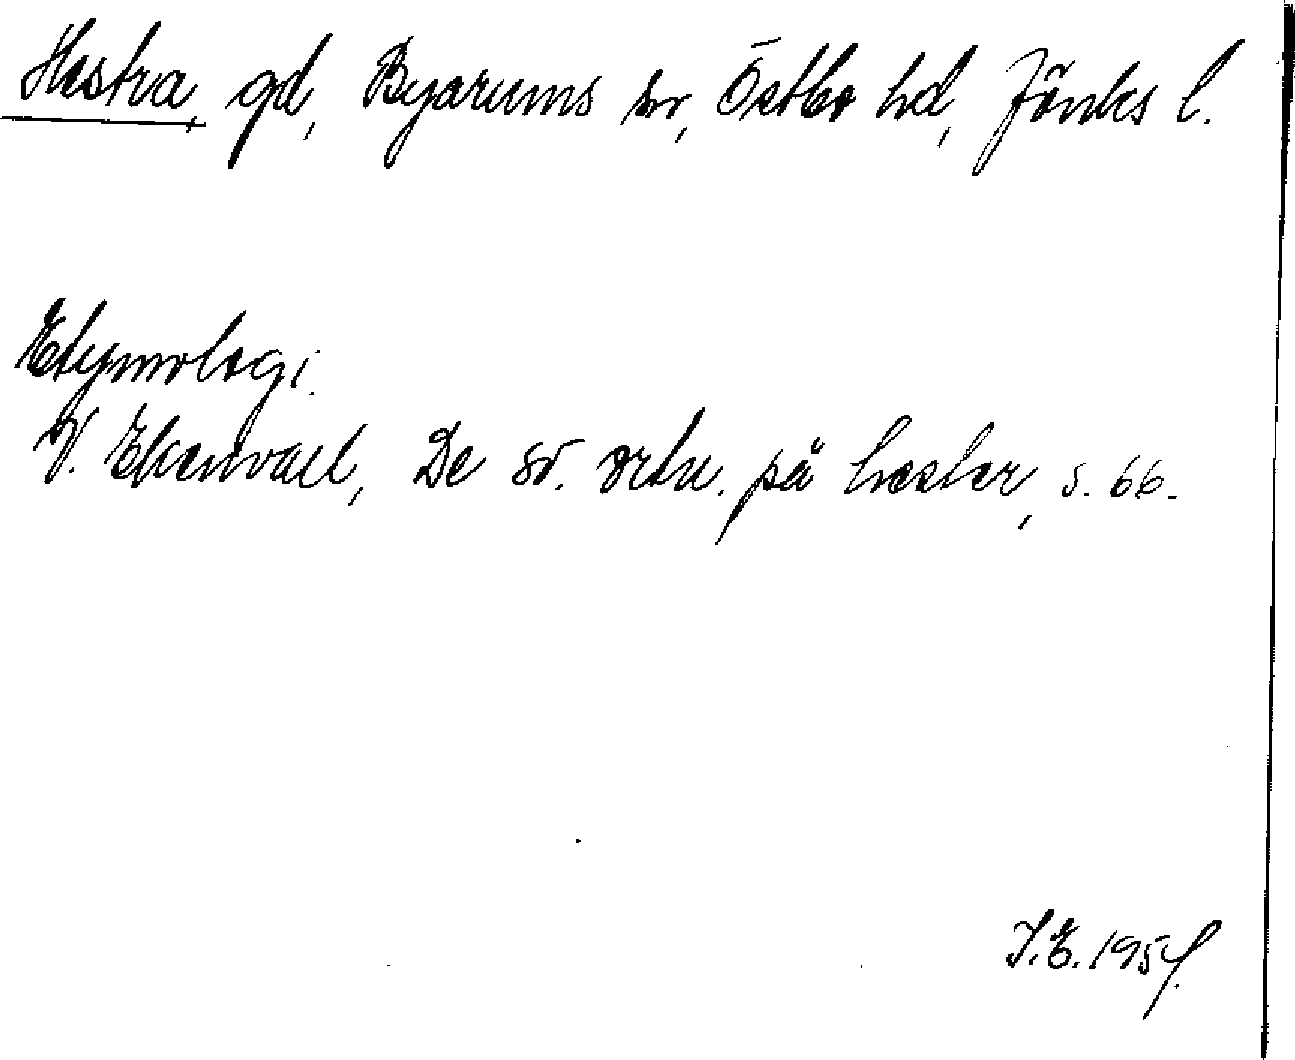 Hestra, gd, Byarums sn, Östbo hd, Jönks l.
Etymologi.
V. Ekenvall, De sv. ortn. på hester, s. 66.
I.E. 1954.